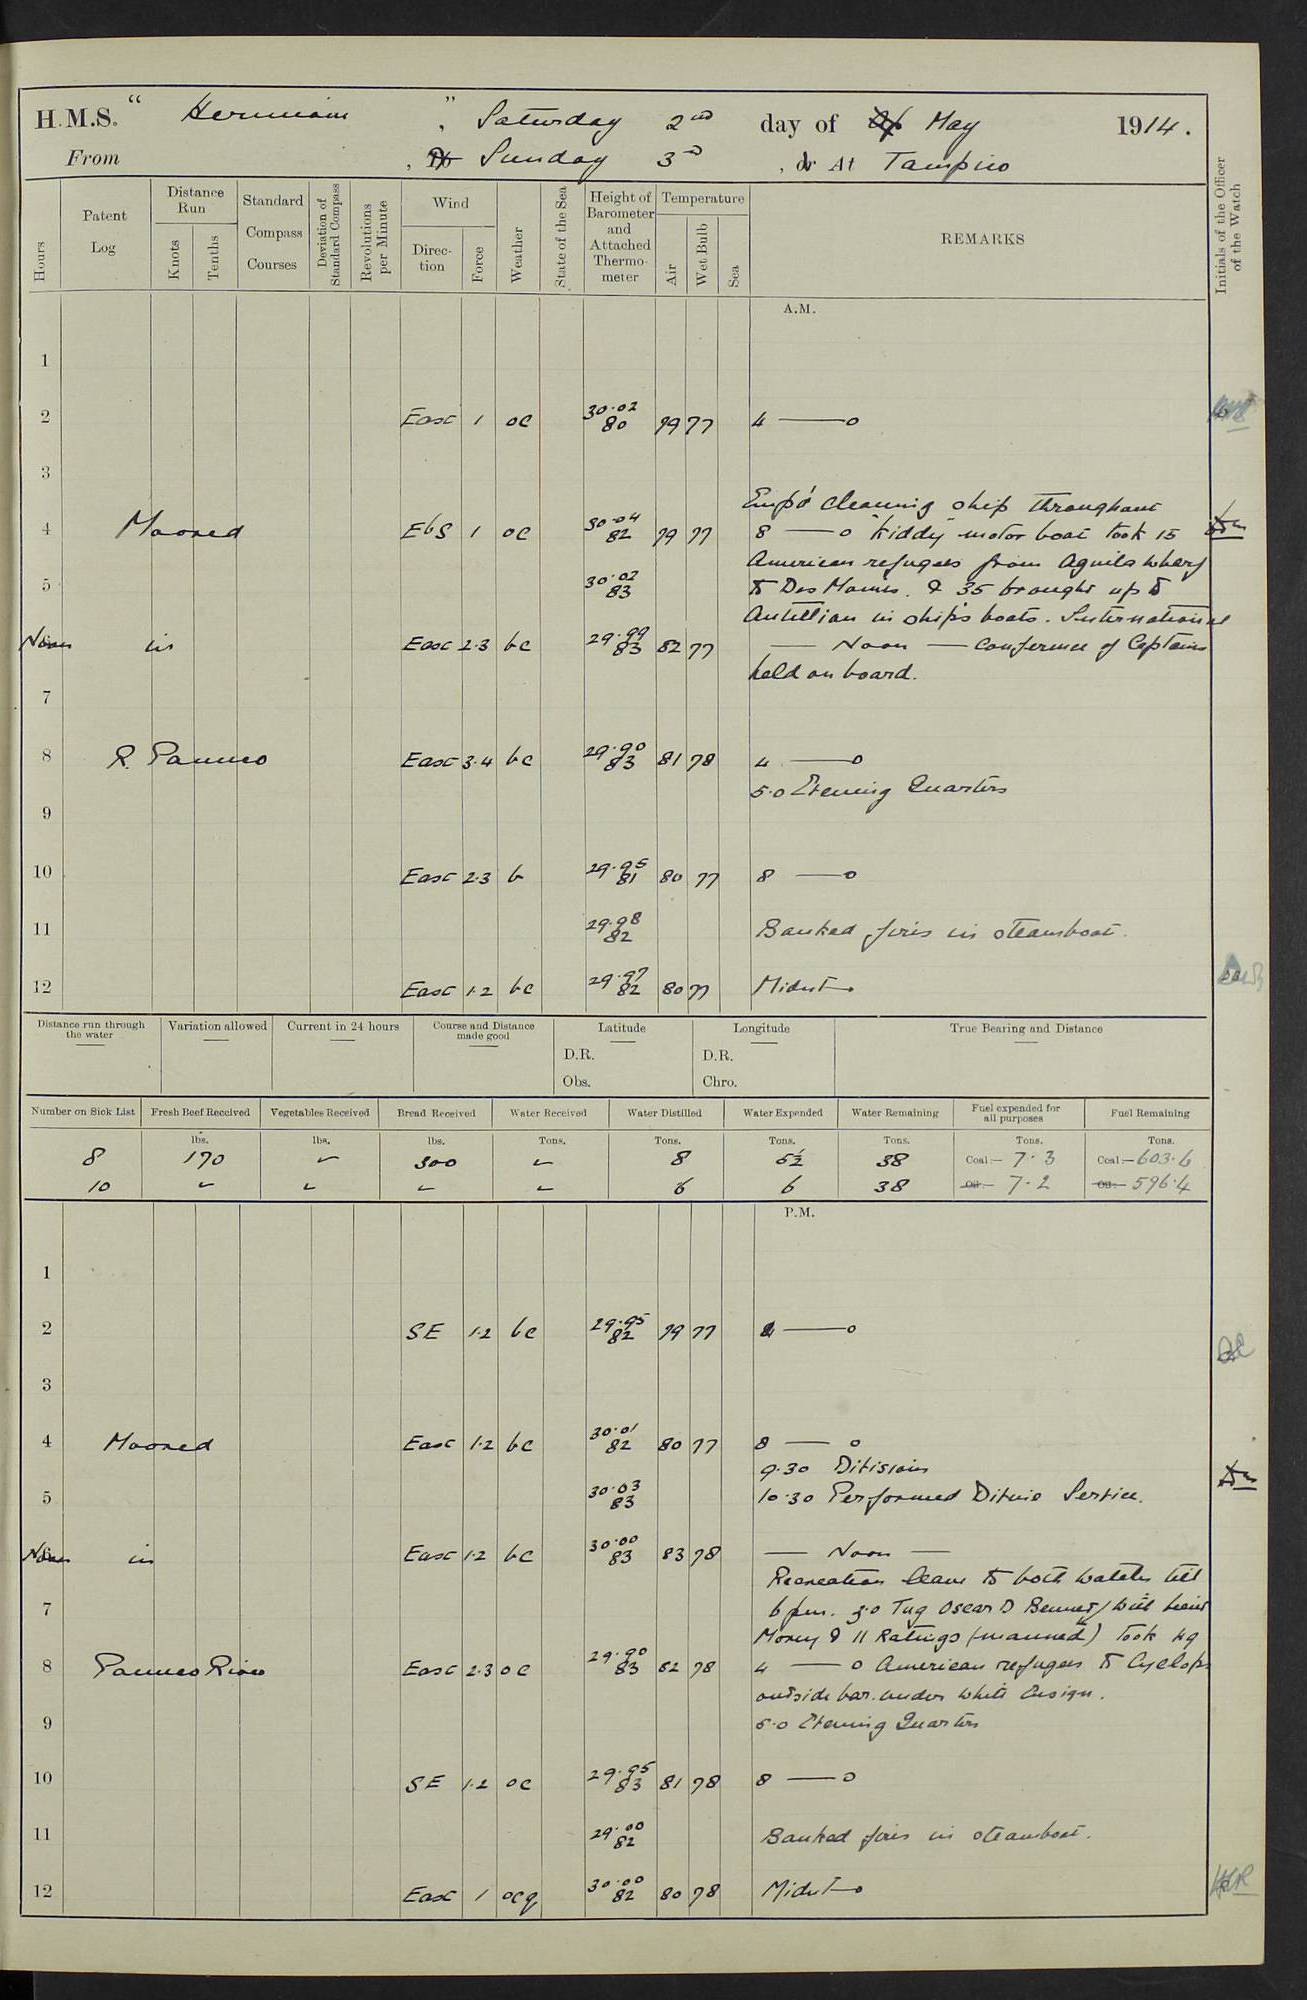 H.M.S. " Hermione " , Saturday 2nd day of May 1914.
From , Sunday 3rd , or At Tampico
Hours
Patent Log
Distance Run
Knots
Tenths
Standard Compass Courses
Deviation of Standard Compass
Revolutions per Minute
Wind
Direction
Force
Weather
State of the Sea
Height of Barometer and Attached Thermometer
Temperature
Air
Wet Bulb
Sea
REMARKS
Initials of the Officer of the Watch
A.M.
1
2 East 1 oc 30.02 80 79 77 4 —— o
3
Emp'd cleaning ship throughout
4 Moored EbS 1 oc 30.04 82 79 77 8 —— o "Kiddy" motor boat took 15
American refugees from Aguila wharf
5 30.02 83 to Des Moines. & 35 brought up to
Antillian in ship's boats. International
Noon in East 2.3 bc 29.99 83 82 77 — Noon — conference of Captains
held on board.
7
8 R. Panuco East 3.4 bc 29.90 83 81 78 4 —— o
5.0 Evening Quarters
9
10 East 2.3 b 29.95 81 80 77 8 —— o
11 29.98 82 Banked fires in steamboat.
12 East 1.2 bc 29.97 82 80 77 Midnt —o
Distance run through the water
Variation allowed
Current in 24 hours
Course and Distance made good
Latitude
D.R.
Obs.
Longitude
D.R.
Chro.
True Bearing and Distance
Number on Sick List Fresh Beef Received Vegetables Received Bread Received Water Received Water Distilled Water Expended Water Remaining Fuel expended for all purposes Fuel Remaining
lbs. lbs. lbs. Tons. Tons. Tons. Tons. Tons. Tons.
8 170 ✓ 300 ✓ 8 5½ 38 Coal:— 7.3 Coal:— 603.6
10 ✓ ✓ ✓ ✓ 6 6 38 Oil:— 7.2 Oil:— 596.4
P.M.
1
2 SE 1.2 bc 29.95 82 79 77 4 —— o
3
4 Moored East 1.2 bc 30.01 82 80 77 8 —— o
9.30 Divisions
5 30.03 83 10.30 Performed Divine Service.
Noon in East 1.2 bc 30.00 83 83 78 — Noon —
Recreation leave to both watches till
7 6 pm. 3.0 Tug Oscar D Bennett / with Lieut
Money & 11 Ratings (manned) took
8 Panuco River East 2.3 oc 29.90 83 82 78 4 —— o American refugees to Cyclops
outside bar. under white Ensign.
9 5.0 Evening Quarters
10 SE 1.2 oc 29.95 83 81 78 8 —— o
11 29.00 82 Banked fires in steamboat.
12 East 1 ocq 30.00 82 80 78 Midnt —o